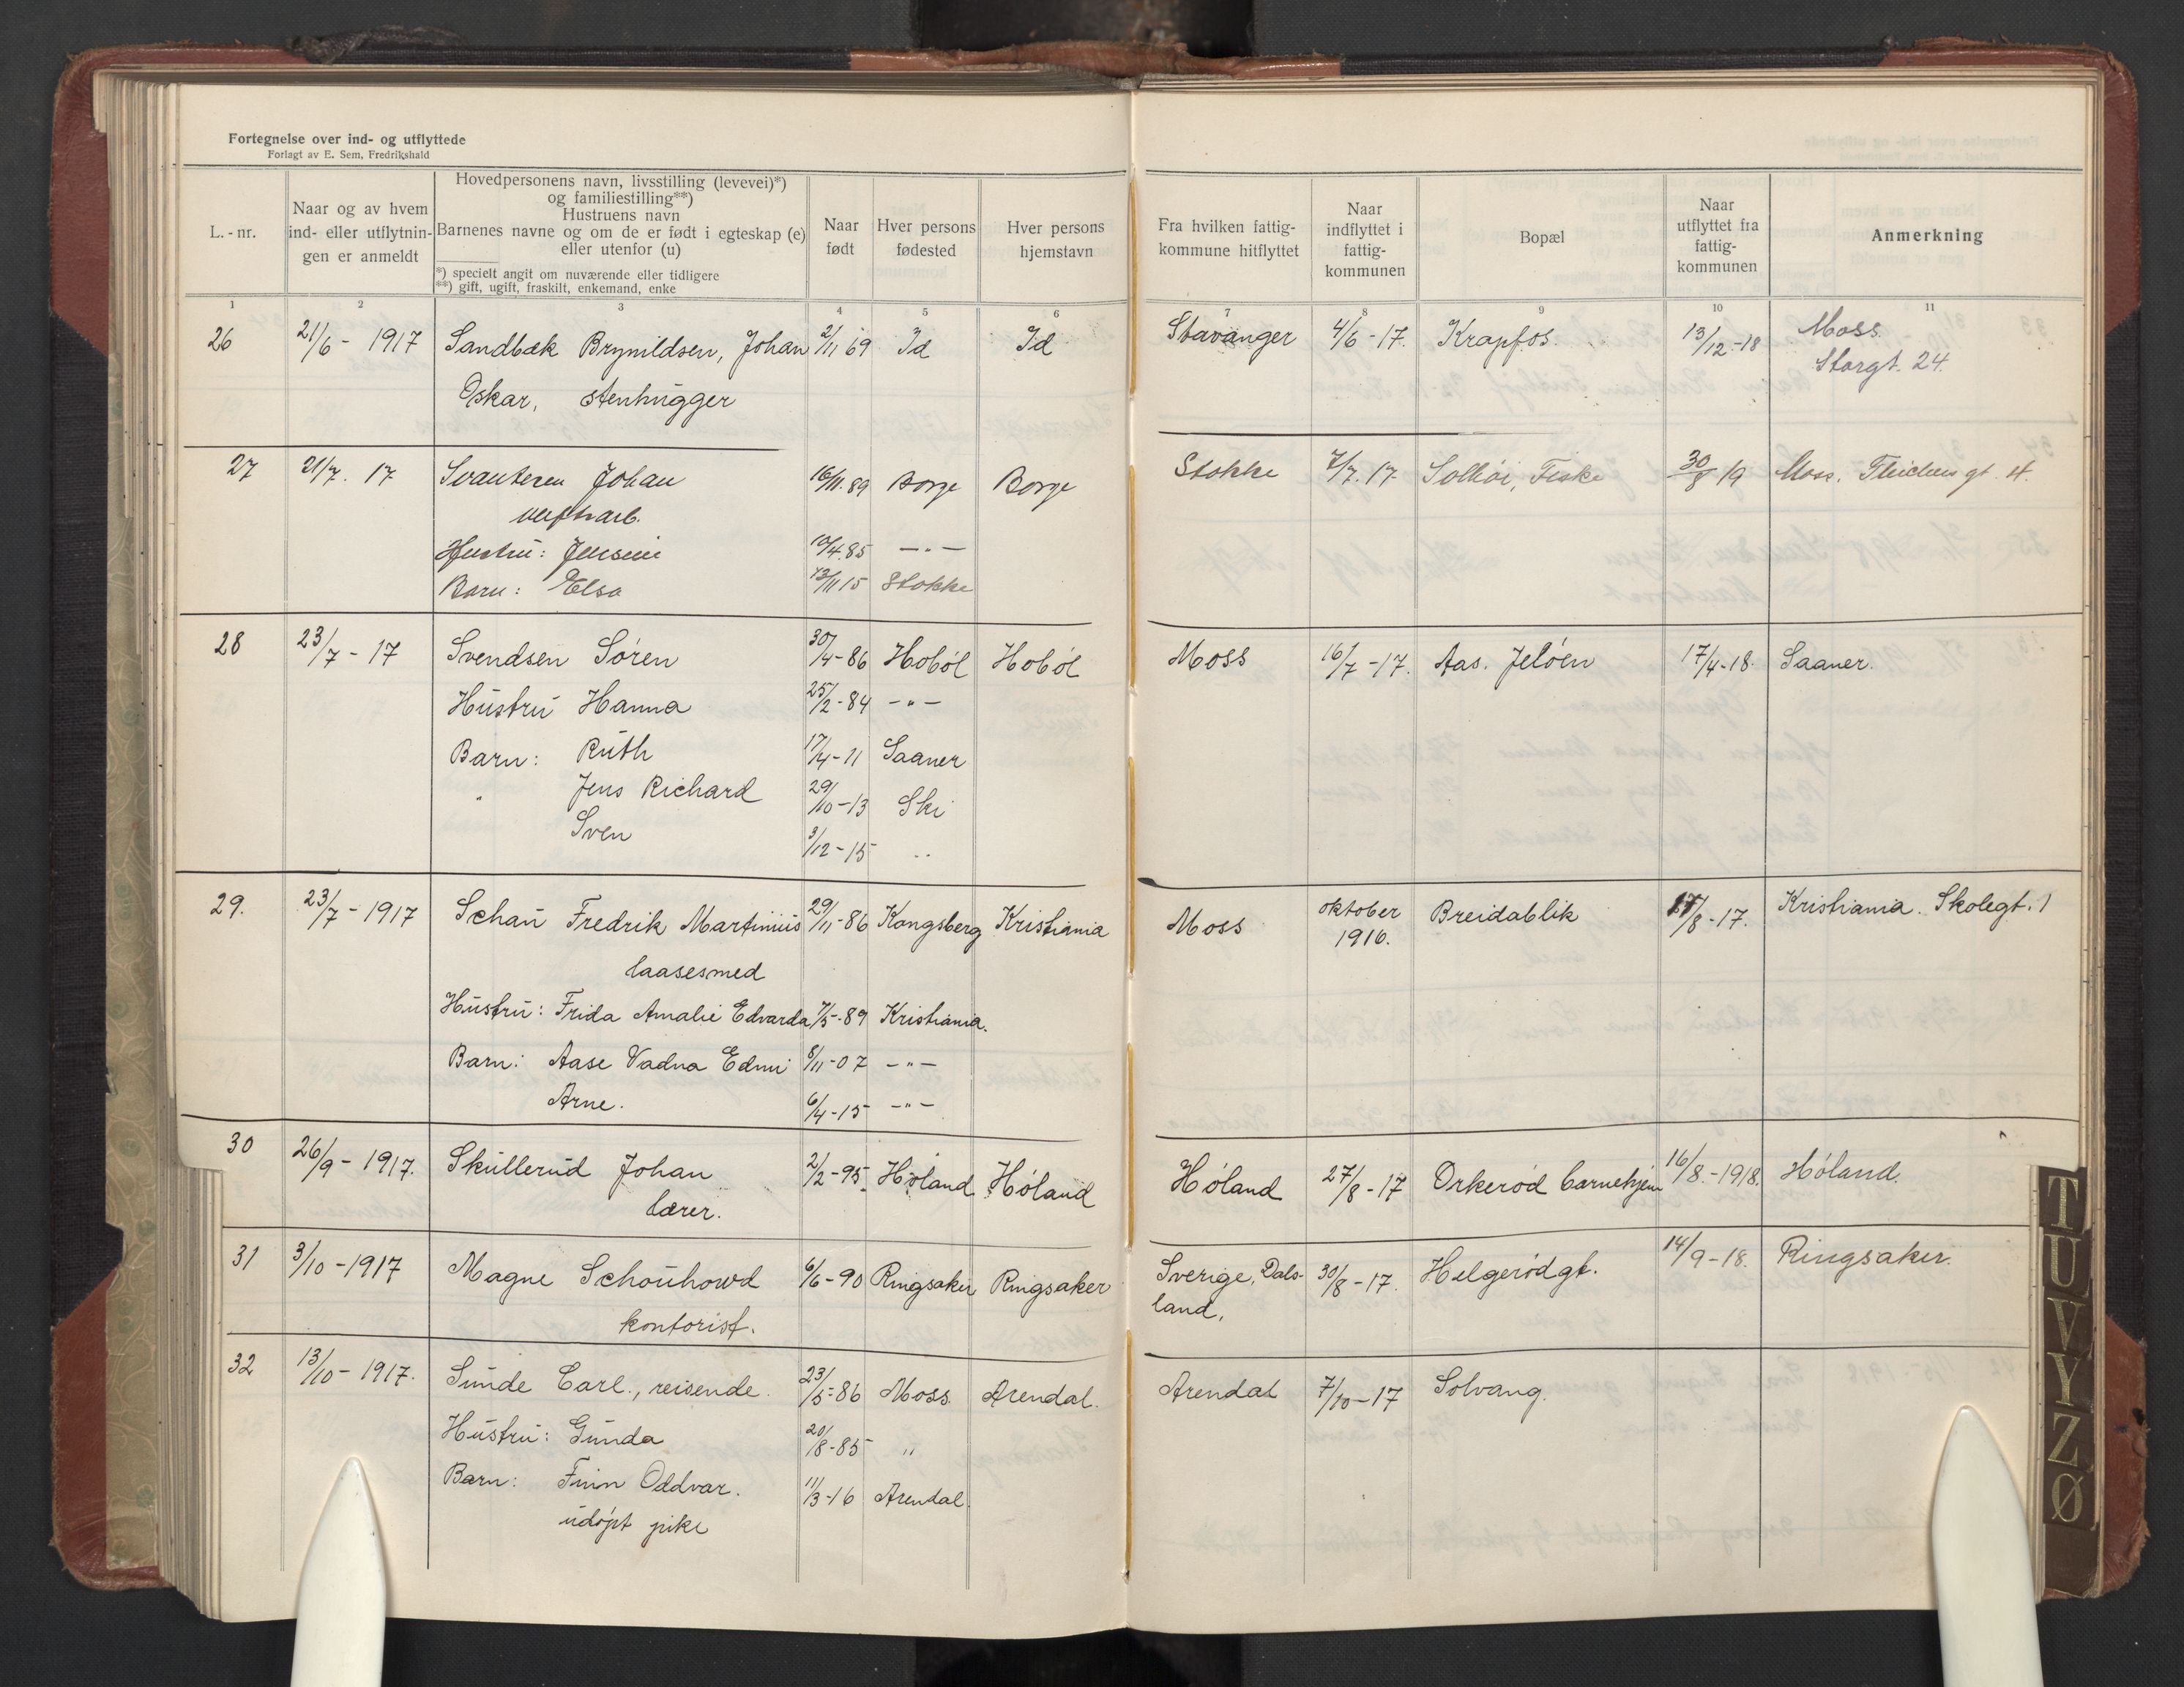 Fortegnelse over ind- og utflyttede
Forlagt av E. Sem, Fredrikshald
L.-nr.
Naar og av hvem
ind- eller utflytnin-
gen er anmeldt
Hovedpersonens navn, livsstilling (levevei)*)
og familiestilling**)
Hustruens navn
Barnenes navne og om de er født i egteskap (e)
eller utenfor (u)
*) specielt angit om nuværende eller tidligere
**) gift, ugift, fraskilt, enkemand, enke
Naar
født
Hver persons
fødested
Hver persons
hjemstavn
Fra hvilken fattig-
kommune hitflyttet
Naar
indflyttet i
fattig-
kommunen
Bopæl
Naar
utflyttet fra
fattig-
kommunen
Anmerkning
1 2 3 4 5 6 7 8 9 10 11
26 21/6 - 1917 Sandbæk Brynildsen, Johan 2/11 69 Id Id Stavanger 4/6 - 17. Krapfos. 13/12 - 18 Moss.
Oskar, stenhugger Storgt. 24.
27 21/7. 17 Svantesen Johan 16/11. 89 Borge Borge Stokke 7/7. 17. Solhøi, Fiske 30/8 19 Moss, gt. 4.
Hustru: 10/4. 85 -"-
Barn: Elsa 13/11 15 Stokke
28 23/7 - 17 Svendsen Sören 30/4 - 86 Hoböl Hoböl Moss 16/7 - 17. Aas. Jelöen 17/4 - 18. Saaner.
Hustru Hanna 25/2 - 84 -"-
Barn: Ruth 17/4 - 11 Saaner
" Jens Richard 29/10 - 13 Ski
Sven 3/12 - 15 "
29. 23/7 - 1917 Schau Fredrik Martinius 29/11 - 86 Kongsberg Kristiania Moss oktober 1916. Breidablik 17/8 - 17. Kristiania. Skolegt. 1
laasesmed
Hustru: Frida Amalie Edvarda 7/5 - 89 Kristiania.
Barn: Aase Vadna Edmi 8/11 - 07 -"-
Arne. 6/4 - 15 -"-
30 26/9 - 1917. Skullerud Johan 2/2 - 95 Høland Höland Höland 27/8 - 17 Orkerød barnehjem 16/8. - 1918. Höland.
lærer.
31 3/10 - 1917 Magne Schouhowd 6/6 - 90 Ringsaker Ringsaker Sverige, Dals- 30/8 - 17. Helgerødgt. 14/9 - 18. Ringsaker.
kontorist. land.
32 13/10 - 1917. Sunde Carl., reisende. 23/5 - 86 Moss. Arendal. Arendal 7/10 - 17 Solvang.
Hustru: Gunda 20/8 - 85 "
Barn: Finn Oddvar. 11/3 - 16 Arendal.
udöpt pike
T
U
V
Y
Z
Ø